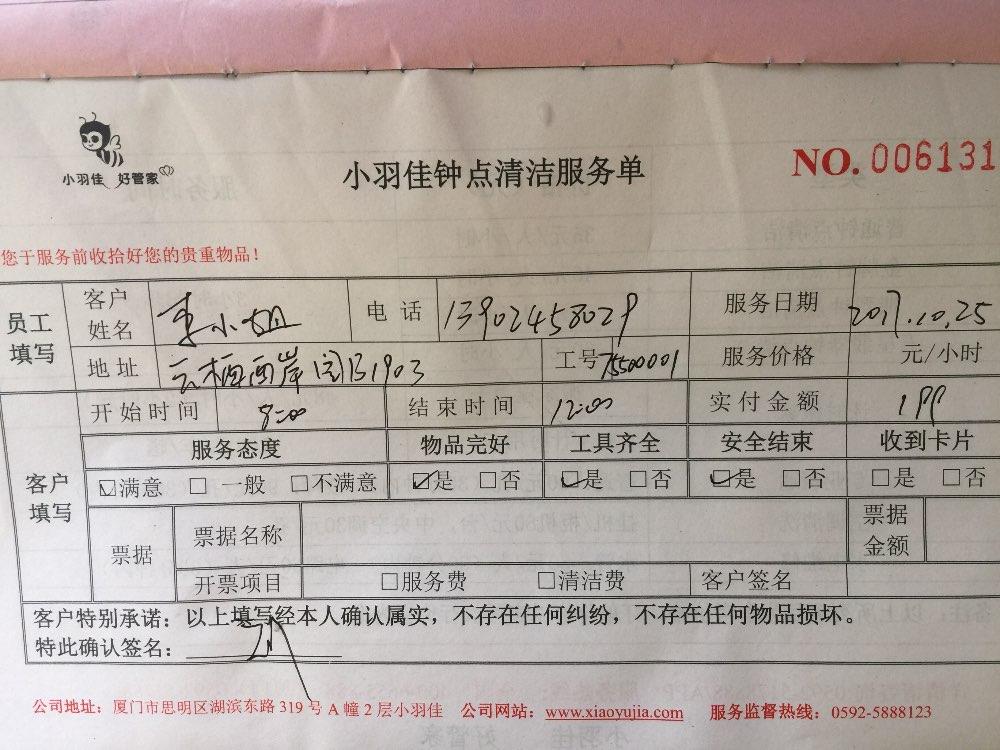 小羽佳 好管家
小羽佳钟点清洁服务单
NO. 006131
您于服务前收拾好您的贵重物品！
员工填写
客户姓名 李小姐 电话 13902458029 服务日期 2017.10.25
地址 云栖西岸阁B1903 工号 75500001 服务价格 元/小时
客户填写
开始时间 8:00 结束时间 12:00 实付金额 199
服务态度 物品完好 工具齐全 安全结束 收到卡片
☑满意 □一般 □不满意 ☑是 □否 ☑是 □否 ☑是 □否 □是 □否
票据 票据名称 票据金额
开票项目 □服务费 □清洁费 客户签名
客户特别承诺：以上填写经本人确认属实，不存在任何纠纷，不存在任何物品损坏。
特此确认签名：
公司地址：厦门市思明区湖滨东路 319 号 A 幢 2 层小羽佳 公司网站：www.xiaoyujia.com 服务监督热线：0592-5888123